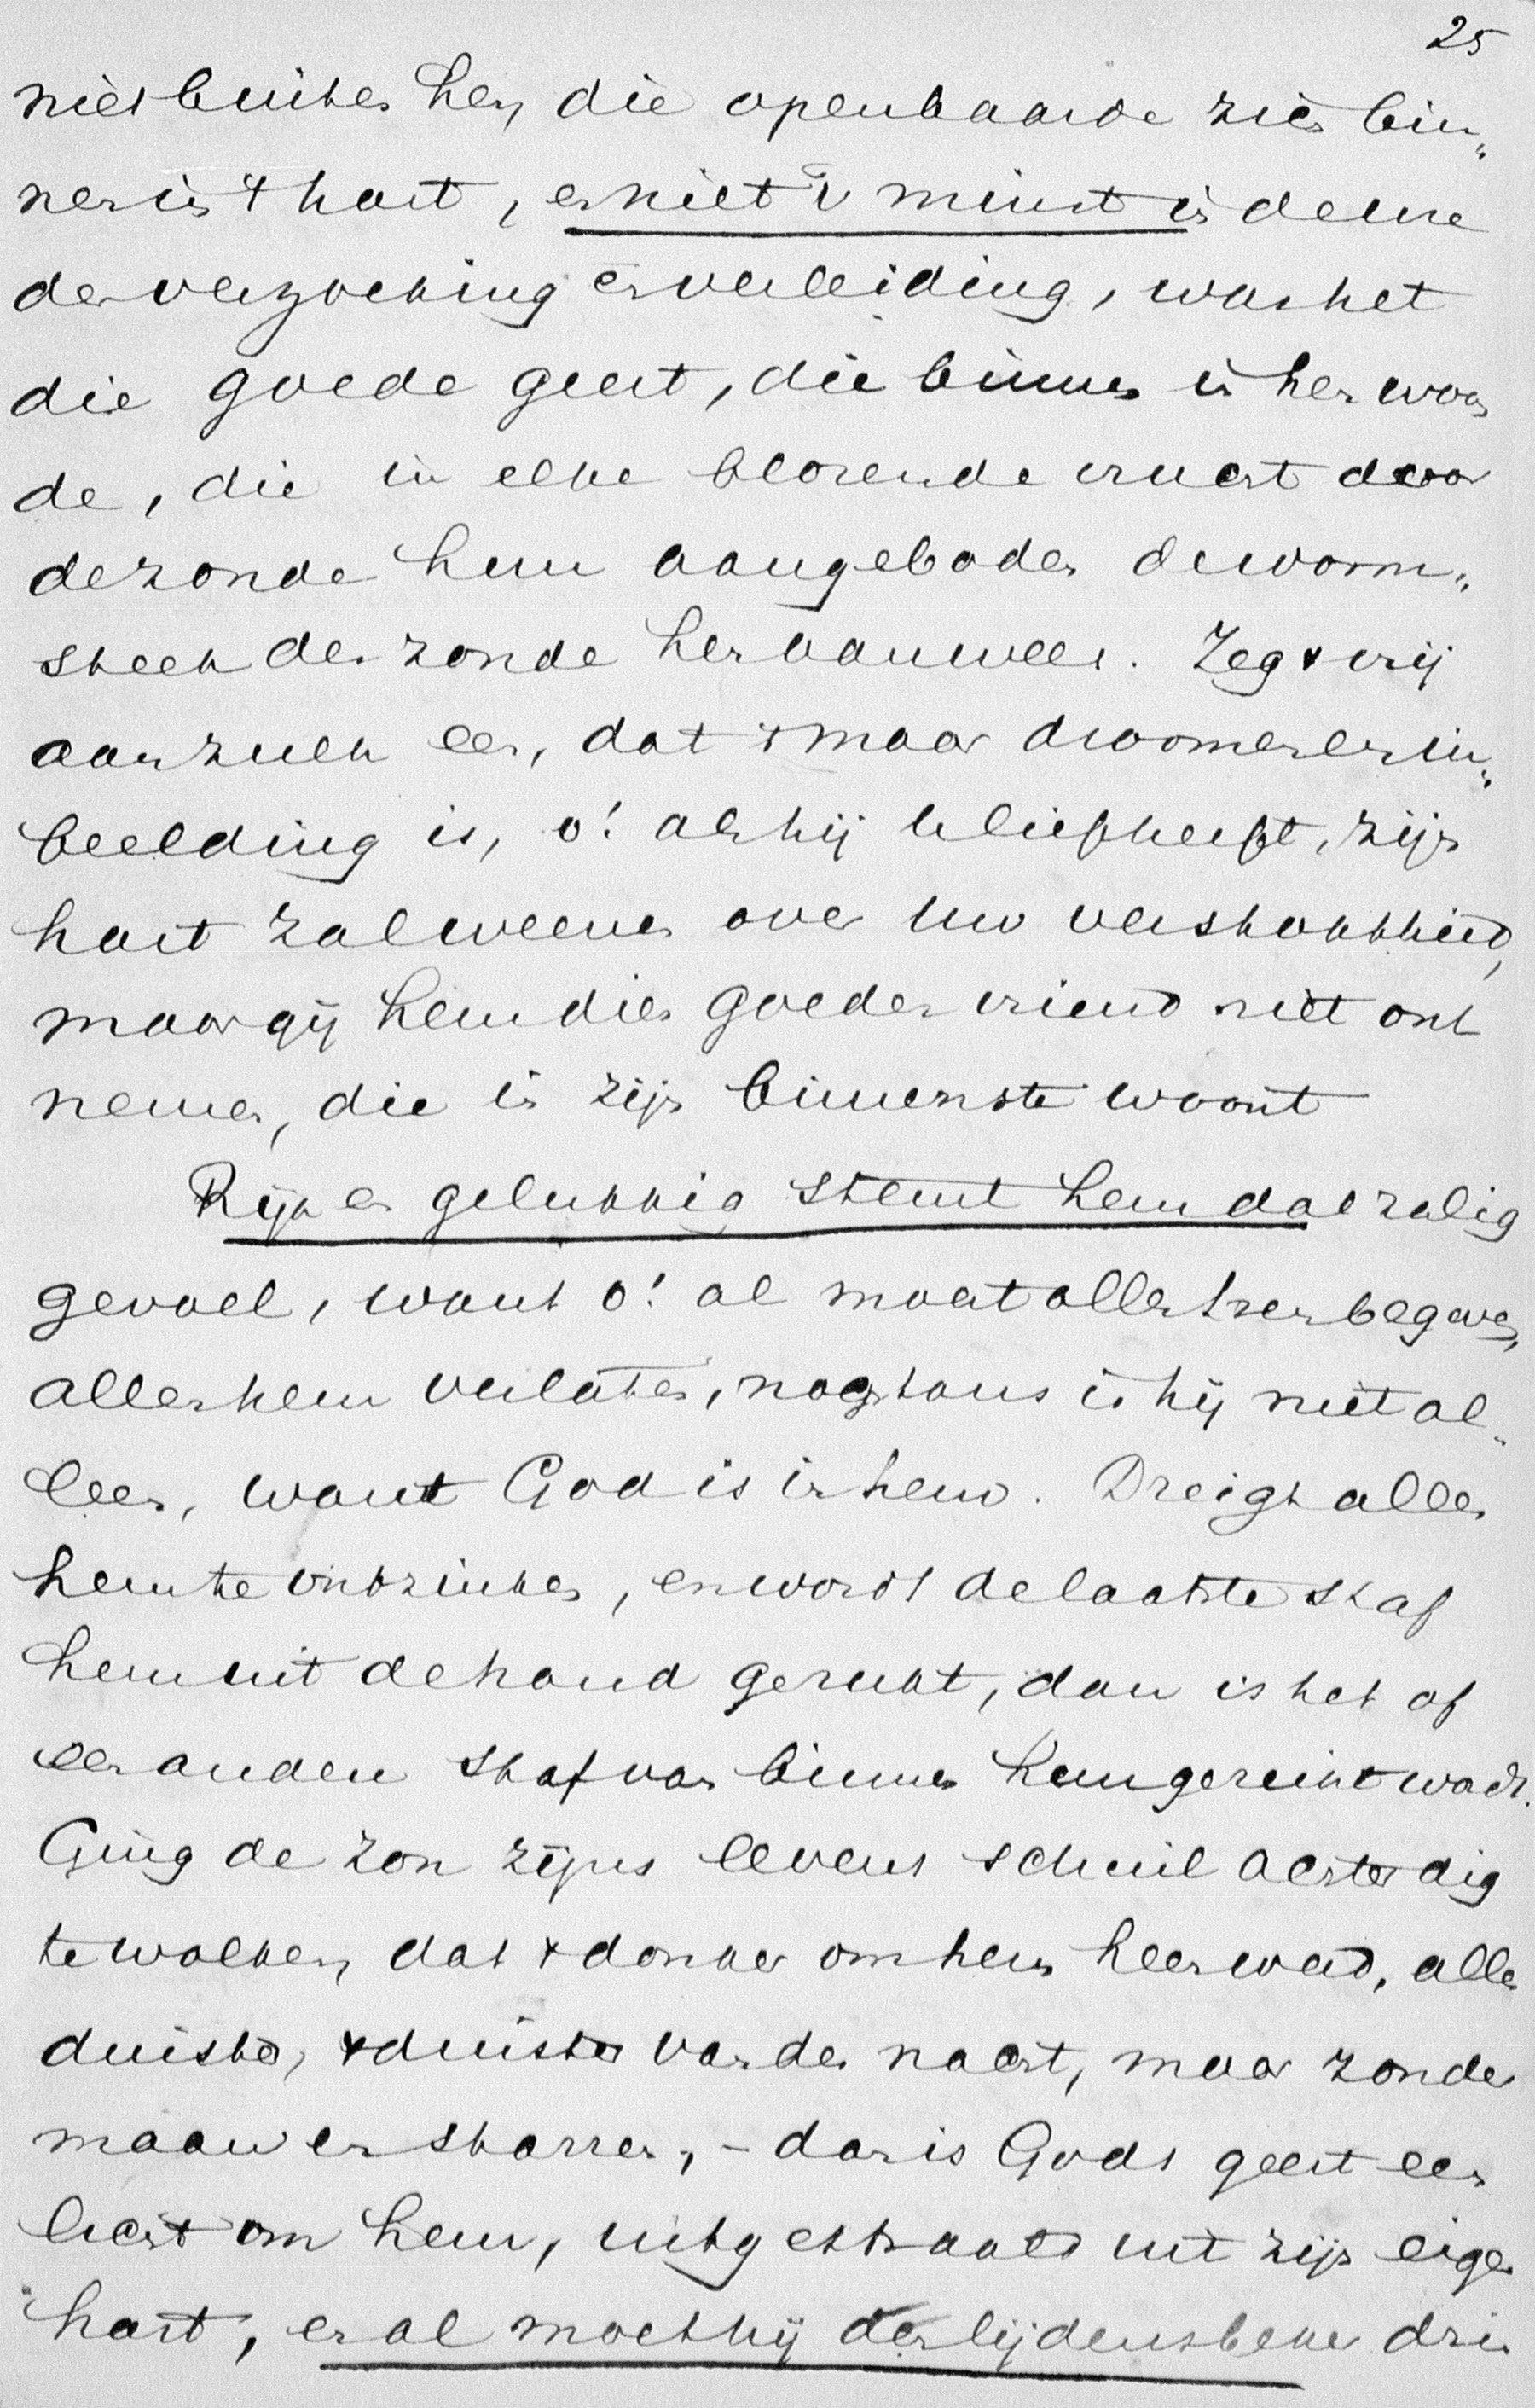 25
niet buiten hen, die openbaarde zich bin„
nen in 't hart, en niet 't minst in de ure
der verzoeking en verleiding, was het
die goede geest, die binnen in hen woon
de, die in elke blozende vrucht door
de zonde hun aangeboden de worm„
steek der zonde hen aanwees. Zeg 't vrij
aan zulk een, dat 't maar droomen en in„
beelding is, o! als hij u liefheeft, zijn
hart zal weenen over uw verstoktheid,
maar gij hem dien goeden vriend niet ont
nemen, die in zijn binnenste woont
Rijk en gelukkig stemt hem dat zalig
gevoel, want o! al moet alles hem begeven,
allen hem verlaten, nogtans is hij niet al„
leen, want God is in hem. Dreigt alles
hem te ontzinken, en wordt de laatste staf
hem uit de hand gerukt, dan is het of
een anderen staf van binnen hem gereikt wordt.
Ging de zon zijns levens schuil achter dig
te wolken, dat 't donker om hem heen werd, alles
duister, 't duister van den nacht, maar zonder
maan en starren, – dan is Gods geest een
licht om hem, uitgestraald uit zijn eigen
hart, en al moet hij den lijdensbeker drin